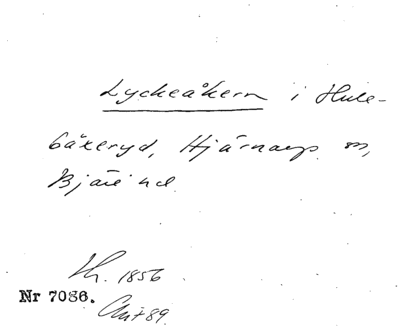 Lyckeåkern i Hule-
bäxeryd, Hjärnarps sn,
Bjäre hd.
Sk. 1856
Nr 7086.
Ant 89.